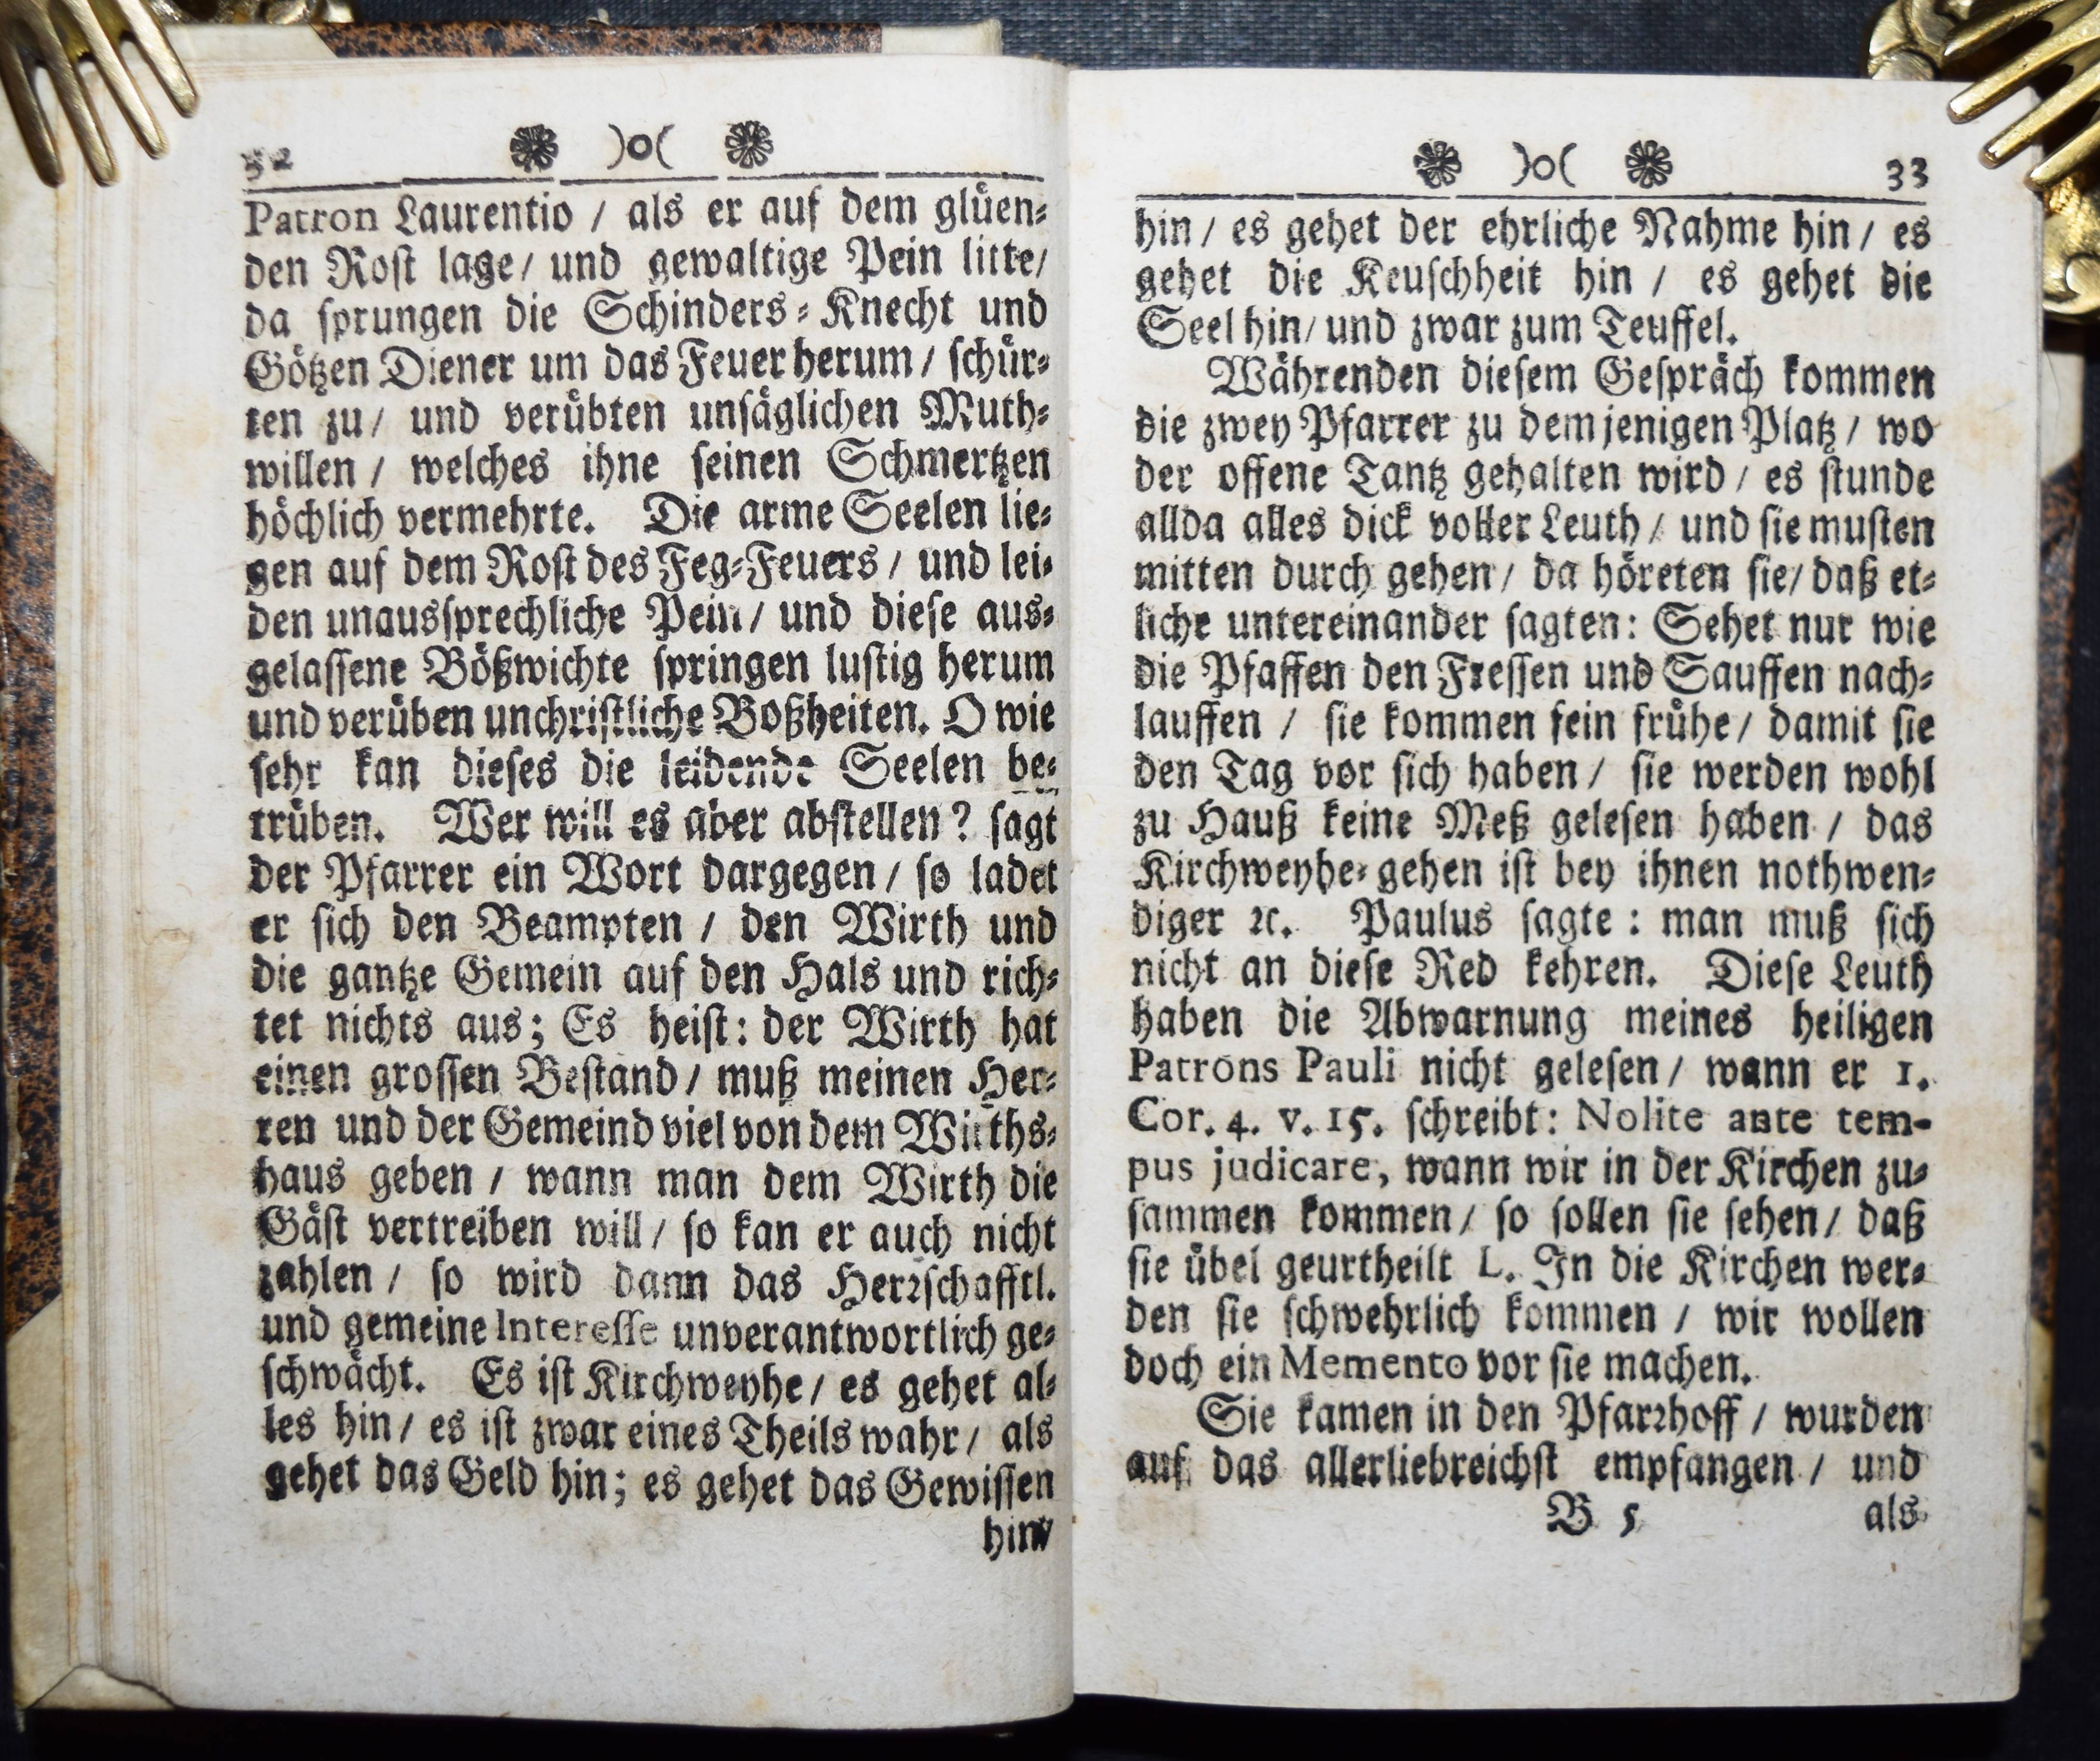 32 )o(
Patron Laurentio / als er auf dem glüen⸗
den Roſt lage / und gewaltige Pein litte /
da ſprungen die Schinders⸗Knecht und
Götzen Diener um das Feuer herum / ſchür⸗
ten zu / und verübten unſäglichen Muth⸗
willen / welches ihne ſeinen Schmertzen
höchlich vermehrte. Die arme Seelen lie⸗
gen auf dem Roſt des Feg⸗Feuers / und lei⸗
den unausſprechliche Pein / und dieſe aus⸗
gelaſſene Bößwichte ſpringen luſtig herum
und verüben unchriſtliche Boßheiten. O wie
ſehr kan dieſes die leidende Seelen be⸗
trüben. Wer will es aber abſtellen? ſagt
der Pfarrer ein Wort dargegen / ſo ladet
er ſich den Beampten / den Wirth und
die gantze Gemein auf den Hals und rich⸗
tet nichts aus; Es heiſt: der Wirth hat
einen groſſen Beſtand / muß meinen Her⸗
ren und der Gemeind viel von dem Wirths⸗
haus geben / wann man dem Wirth die
Gäſt vertreiben will / ſo kan er auch nicht
zahlen / ſo wird dann das Herꝛſchafftl.
und gemeine Intereſſe unverantwortlich ge⸗
ſchwächt. Es iſt Kirchweyhe / es gehet al⸗
les hin / es iſt zwar eines Theils wahr / als
gehet das Geld hin; es gehet das Gewiſſen
hin /
)o( 33
hin / es gehet der ehrliche Nahme hin / es
gehet die Keuſchheit hin / es gehet die
Seel hin / und zwar zum Teuffel.
Währenden dieſem Geſpräch kommen
die zwey Pfarrer zu dem jenigen Platz / wo
der offene Tantz gehalten wird / es ſtunde
allda alles dick voller Leuth / und ſie muſten
mitten durch gehen / da höreten ſie / daß et⸗
liche untereinander ſagten: Sehet nur wie
die Pfaffen den Freſſen und Sauffen nach⸗
lauffen / ſie kommen fein frühe / damit ſie
den Tag vor ſich haben / ſie werden wohl
zu Hauß keine Meß geleſen haben / das
Kirchweyhe⸗gehen iſt bey ihnen nothwen⸗
diger ꝛc. Paulus ſagte: man muß ſich
nicht an dieſe Red kehren. Dieſe Leuth
haben die Abwarnung meines heiligen
Patrons Pauli nicht geleſen / wann er 1.
Cor. 4. v. 15. ſchreibt: Nolite ante tem-
pus judicare, wann wir in der Kirchen zu⸗
ſammen kommen / ſo ſollen ſie ſehen / daß
ſie übel geurtheilt L. In die Kirchen wer⸗
den ſie ſchwehrlich kommen / wir wollen
doch ein Memento vor ſie machen.
Sie kamen in den Pfarꝛhoff / wurden
auf das allerliebreichſt empfangen / und
B 5 als